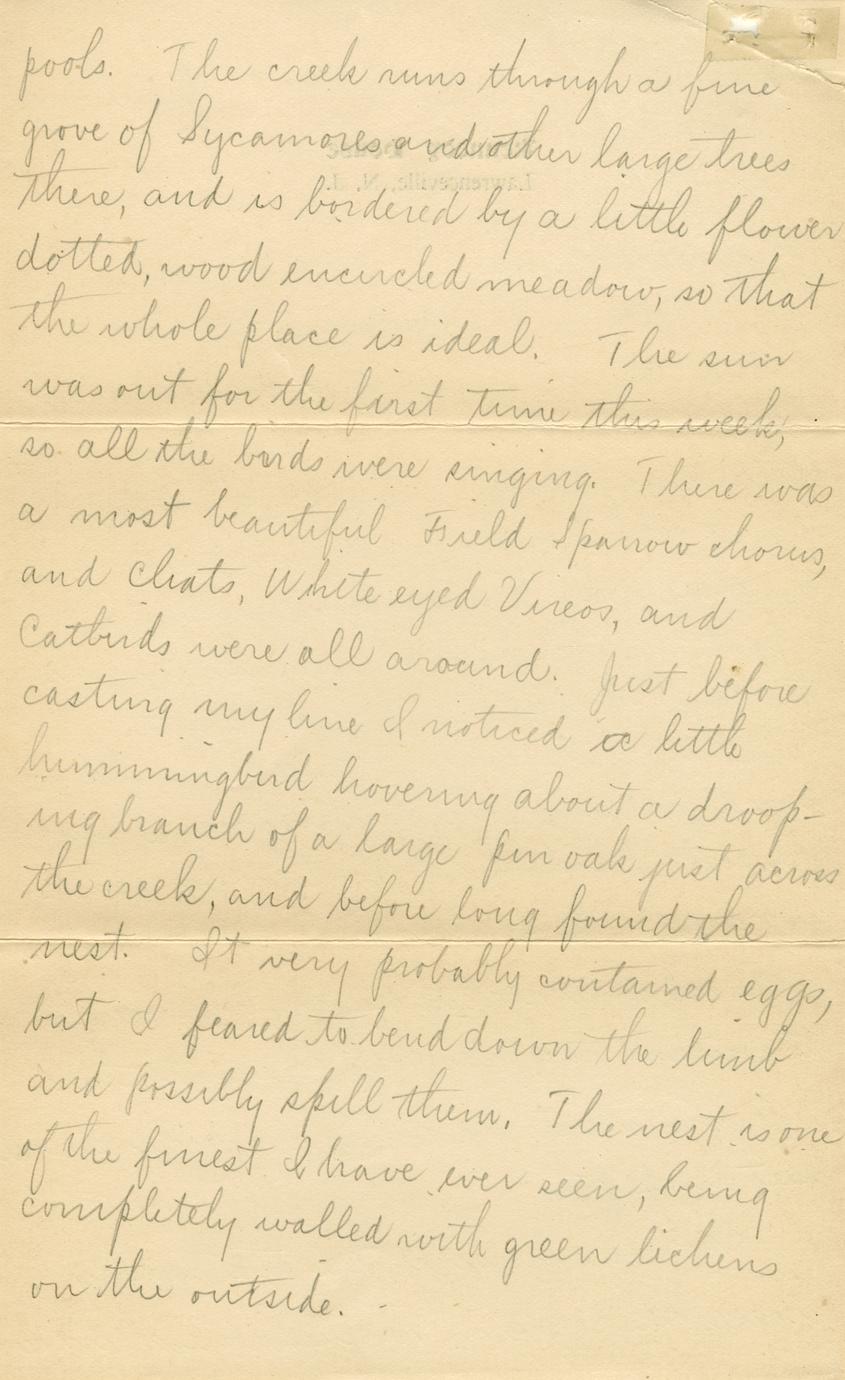 pools. The creek runs through a fine
grove of Sycamores and other large trees
there, and is bordered by a little flower
dotted, wood encircled meadow, so that
the whole place is ideal. The sun
was out for the first time this week,
so all the birds were singing. There was
a most beautiful Field Sparrow chorus,
and Chats, White eyed Vireos, and
Catbirds were all around. Just before
casting my line I noticed a little
hummingbird hovering about a droop-
ing branch of a large pin oak just across
the creek, and before long found the
nest. It very probably contained eggs,
but I feared to bend down the limb
and possibly spill them. The nest is one
of the finest I have ever seen, being
completely walled with green lichens
on the outside.
Lawrenceville, N. J.